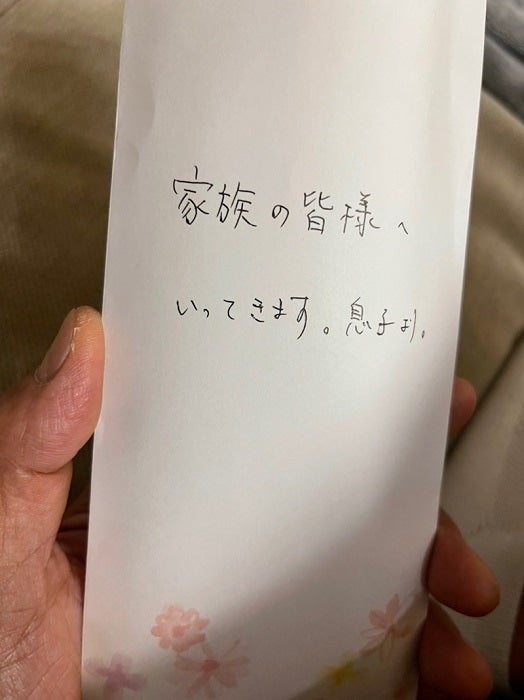 家族の皆様へ
いってきます。息子より。